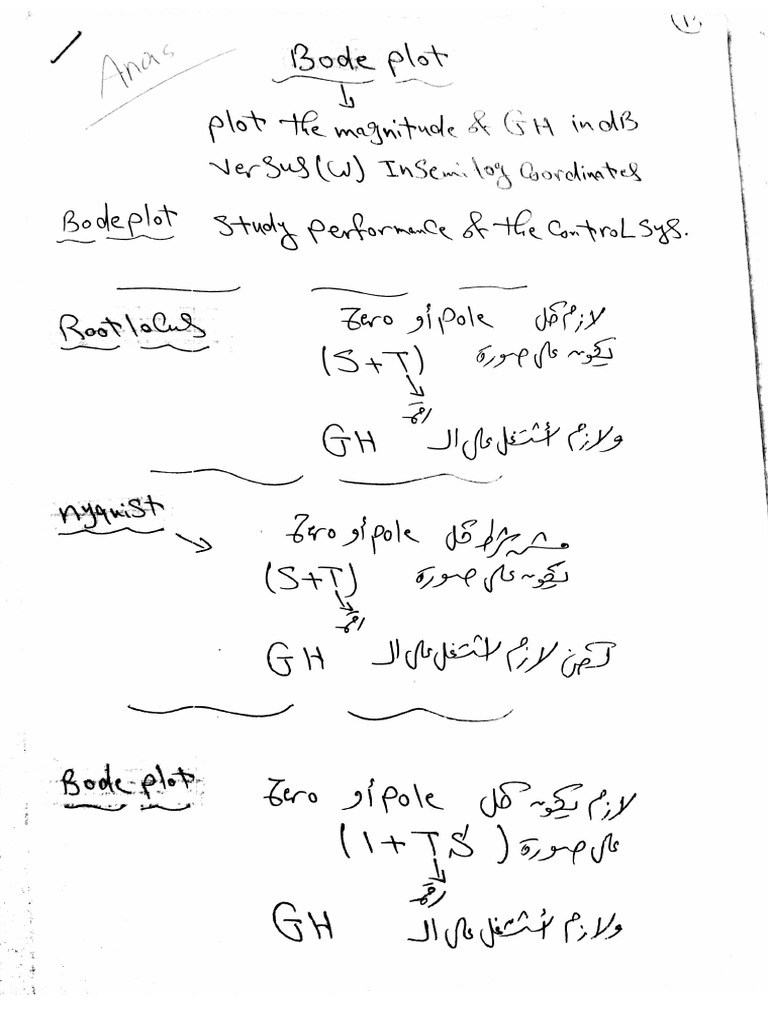 (1)
Anas
Bode plot
plot the magnitude of GH in dB
versus (W) In Semilog Coordinates
Bode plot study performance of the control sys.
Root locus
لازم كل pole أو Zero
يكون على صورة (S+T)
رقم
ولازم أشتغل على الـ GH
nyquist
مش شرط كل pole أو Zero
يكون على صورة (S+T)
رقم
لكن لازم اشتغل على الـ GH
Bode plot
لازم يكون كل pole أو Zero
على صورة (1+TS)
رقم
ولازم أشتغل على الـ GH